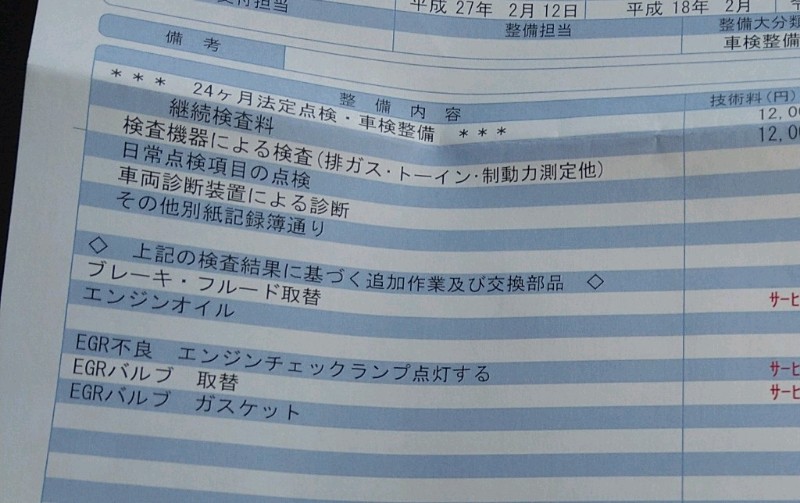 平成 27年 2月 12日 平成 18年 2月
整備担当 整備大分類
備考 車検整備
整備内容 技術料(円)
*** 24ヶ月法定点検・車検整備 *** 12,00
継続検査料 12,00
検査機器による検査(排ガス・トーイン・制動力測定他)
日常点検項目の点検
車両診断装置による診断
その他別紙記録簿通り
◇ 上記の検査結果に基づく追加作業及び交換部品 ◇
ブレーキ・フルード取替 サービ
エンジンオイル
EGR不良 エンジンチェックランプ点灯する サービ
EGRバルブ 取替 サービ
EGRバルブ ガスケット